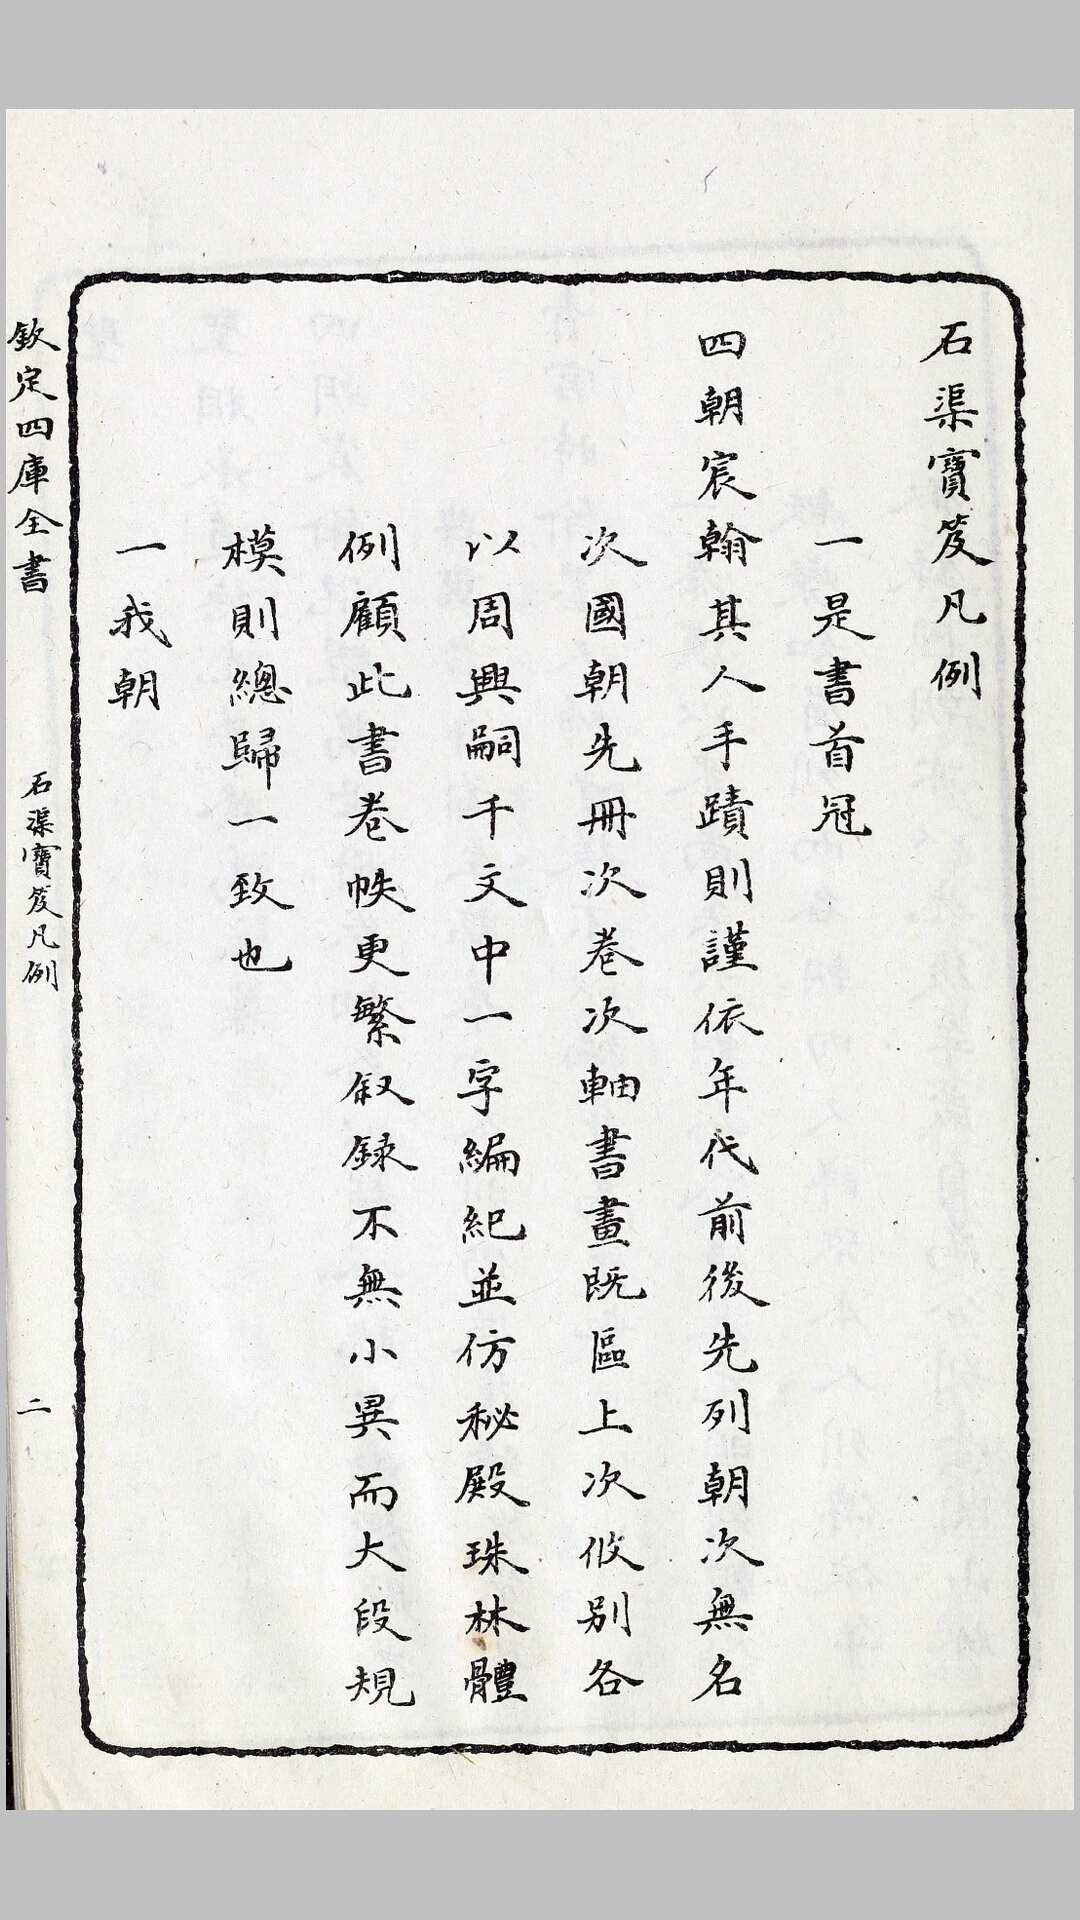 石渠寶笈凡例
一是書首冠
四朝宸翰其人手蹟則謹依年代前後先列朝次無名
次國朝先冊次卷次軸書畫既區上次攸別各
以周興嗣千文中一字編紀並仿秘殿珠林體
例顧此書卷帙更繁叙録不無小異而大段規
模則總歸一致也
一我朝
欽定四庫全書
石渠寶笈凡例
二